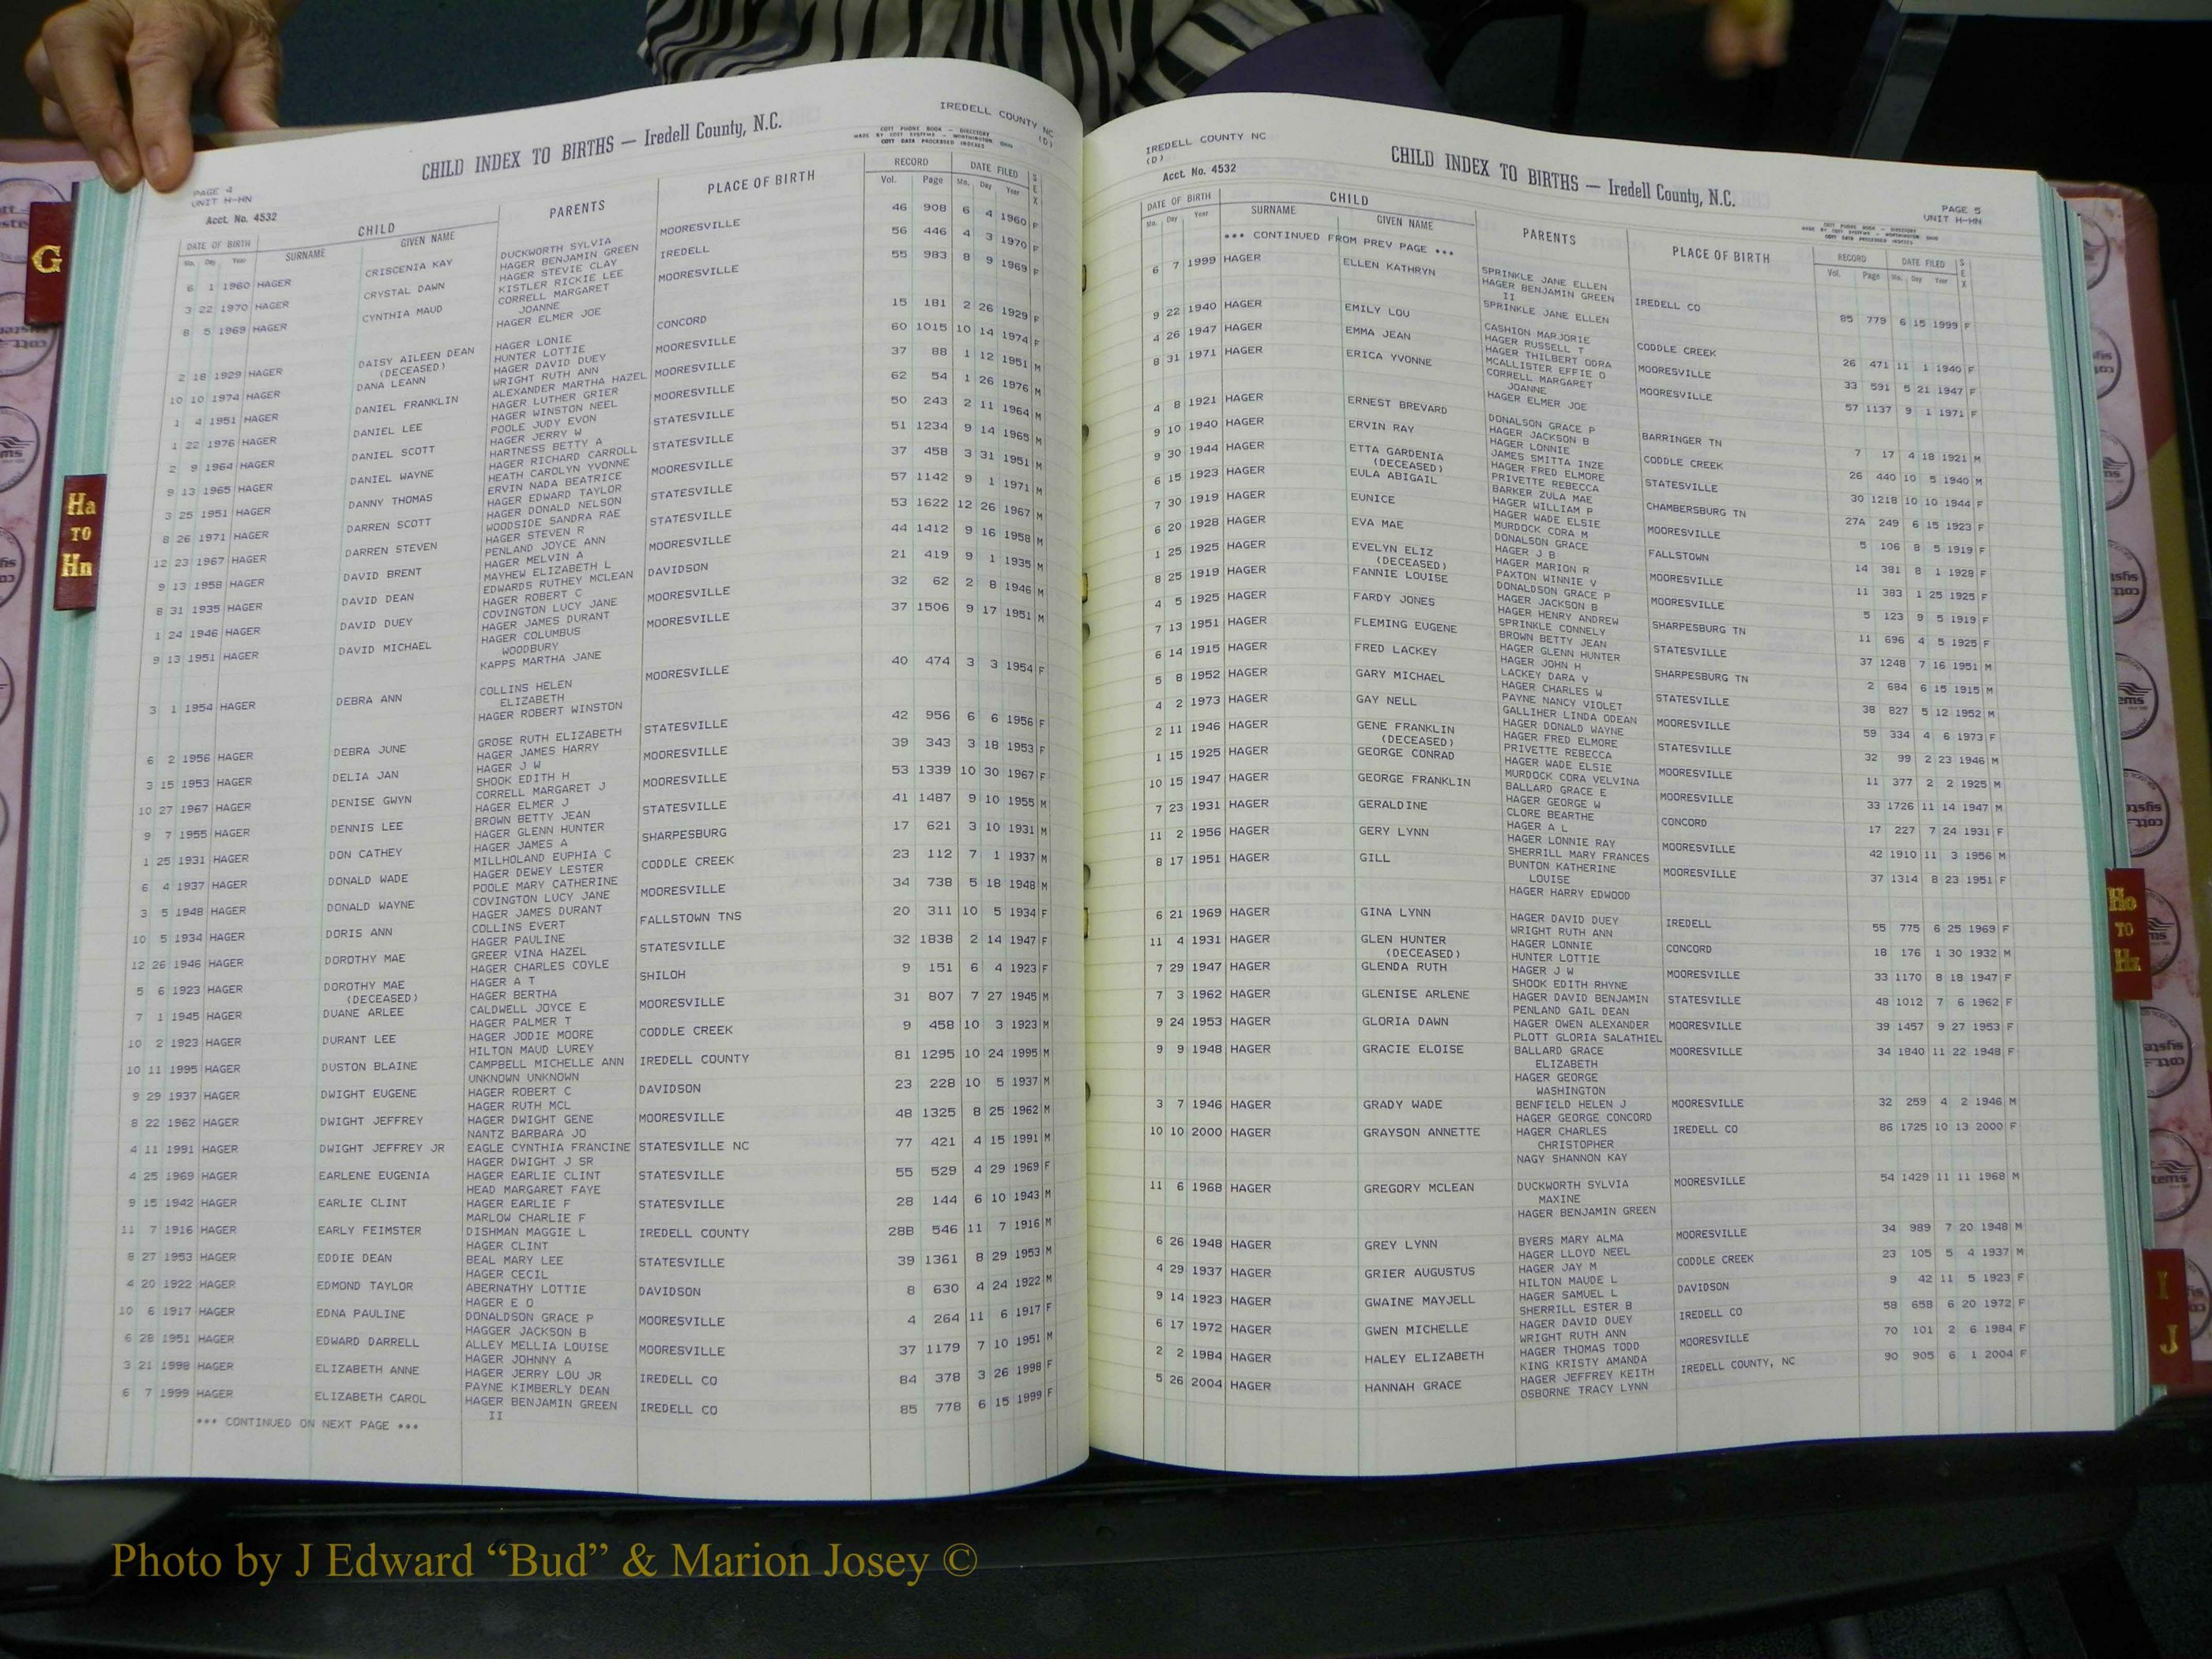 IREDELL COUNTY NC
(D)
CHILD INDEX TO BIRTHS — Iredell County, N.C.
COTT PHONE BOOK — DIRECTORY
MADE BY COTT SYSTEMS — WORTHINGTON OHIO
COTT DATA PROCESSED INDEXES
PAGE 4
UNIT H-HN
Acct. No. 4532
DATE OF BIRTH CHILD PARENTS PLACE OF BIRTH RECORD DATE FILED SEX
Mo. Day Year SURNAME GIVEN NAME Vol. Page Mo. Day Year
6 1 1960 HAGER CRISCENIA KAY DUCKWORTH SYLVIA MOORESVILLE 46 908 6 4 1960 F
HAGER BENJAMIN GREEN
3 22 1970 HAGER CRYSTAL DAWN HAGER STEVIE CLAY IREDELL 56 446 4 3 1970 F
KISTLER RICKIE LEE
8 5 1969 HAGER CYNTHIA MAUD CORRELL MARGARET MOORESVILLE 55 983 8 9 1969 F
JOANNE
HAGER ELMER JOE
2 18 1929 HAGER DAISY AILEEN DEAN HAGER LONIE CONCORD 15 181 2 26 1929 F
(DECEASED) HUNTER LOTTIE
10 10 1974 HAGER DANA LEANN HAGER DAVID DUEY MOORESVILLE 60 1015 10 14 1974 F
WRIGHT RUTH ANN
1 4 1951 HAGER DANIEL FRANKLIN ALEXANDER MARTHA HAZEL MOORESVILLE 37 88 1 12 1951 M
HAGER LUTHER GRIER
1 22 1976 HAGER DANIEL LEE HAGER WINSTON NEEL MOORESVILLE 62 54 1 26 1976 M
POOLE JUDY EVON
2 9 1964 HAGER DANIEL SCOTT HAGER JERRY W STATESVILLE 50 243 2 11 1964 M
HARTNESS BETTY A
9 13 1965 HAGER DANIEL WAYNE HAGER RICHARD CARROLL STATESVILLE 51 1234 9 14 1965 M
HEATH CAROLYN YVONNE
3 25 1951 HAGER DANNY THOMAS ERVIN NADA BEATRICE MOORESVILLE 37 458 3 31 1951 M
HAGER EDWARD TAYLOR
8 26 1971 HAGER DARREN SCOTT HAGER DONALD NELSON STATESVILLE 57 1142 9 1 1971 M
WOODSIDE SANDRA RAE
12 23 1967 HAGER DARREN STEVEN HAGER STEVEN R STATESVILLE 53 1622 12 26 1967 M
PENLAND JOYCE ANN
9 13 1958 HAGER DAVID BRENT HAGER MELVIN A MOORESVILLE 44 1412 9 16 1958 M
MAYHEW ELIZABETH L
8 31 1935 HAGER DAVID DEAN EDWARDS RUTHEY MCLEAN DAVIDSON 21 419 9 1 1935 M
HAGER ROBERT C
1 24 1946 HAGER DAVID DUEY COVINGTON LUCY JANE MOORESVILLE 32 62 2 8 1946 M
HAGER JAMES DURANT
9 13 1951 HAGER DAVID MICHAEL HAGER COLUMBUS MOORESVILLE 37 1506 9 17 1951 M
WOODBURY
KAPPS MARTHA JANE
3 1 1954 HAGER DEBRA ANN COLLINS HELEN MOORESVILLE 40 474 3 3 1954 F
ELIZABETH
HAGER ROBERT WINSTON
6 2 1956 HAGER DEBRA JUNE GROSE RUTH ELIZABETH STATESVILLE 42 956 6 6 1956 F
HAGER JAMES HARRY
3 15 1953 HAGER DELIA JAN HAGER J W MOORESVILLE 39 343 3 18 1953 F
SHOOK EDITH H
10 27 1967 HAGER DENISE GWYN CORRELL MARGARET J MOORESVILLE 53 1339 10 30 1967 F
HAGER ELMER J
9 7 1955 HAGER DENNIS LEE BROWN BETTY JEAN STATESVILLE 41 1487 9 10 1955 M
HAGER GLENN HUNTER
1 25 1931 HAGER DON CATHEY HAGER JAMES A SHARPESBURG 17 621 3 10 1931 M
MILLHOLAND EUPHIA C
6 4 1937 HAGER DONALD WADE HAGER DEWEY LESTER CODDLE CREEK 23 112 7 1 1937 M
POOLE MARY CATHERINE
3 5 1948 HAGER DONALD WAYNE COVINGTON LUCY JANE MOORESVILLE 34 738 5 18 1948 M
HAGER JAMES DURANT
10 5 1934 HAGER DORIS ANN COLLINS EVERT FALLSTOWN TNS 20 311 10 5 1934 F
HAGER PAULINE
12 26 1946 HAGER DOROTHY MAE GREER VINA HAZEL STATESVILLE 32 1838 2 14 1947 F
HAGER CHARLES COYLE
5 6 1923 HAGER DOROTHY MAE HAGER A T SHILOH 9 151 6 4 1923 F
(DECEASED) HAGER BERTHA
7 1 1945 HAGER DUANE ARLEE CALDWELL JOYCE E MOORESVILLE 31 807 7 27 1945 M
HAGER PALMER T
10 2 1923 HAGER DURANT LEE HAGER JODIE MOORE CODDLE CREEK 9 458 10 3 1923 M
HILTON MAUD LUREY
10 11 1995 HAGER DUSTON BLAINE CAMPBELL MICHELLE ANN IREDELL COUNTY 81 1295 10 24 1995 M
UNKNOWN UNKNOWN
9 29 1937 HAGER DWIGHT EUGENE HAGER ROBERT C DAVIDSON 23 228 10 5 1937 M
HAGER RUTH MCL
8 22 1962 HAGER DWIGHT JEFFREY HAGER DWIGHT GENE MOORESVILLE 48 1325 8 25 1962 M
NANTZ BARBARA JO
4 11 1991 HAGER DWIGHT JEFFREY JR EAGLE CYNTHIA FRANCINE STATESVILLE NC 77 421 4 15 1991 M
HAGER DWIGHT J SR
4 25 1969 HAGER EARLENE EUGENIA HAGER EARLIE CLINT STATESVILLE 55 529 4 29 1969 F
HEAD MARGARET FAYE
9 15 1942 HAGER EARLIE CLINT HAGER EARLIE F STATESVILLE 28 144 6 10 1943 M
MARLOW CHARLIE F
11 7 1916 HAGER EARLY FEIMSTER DISHMAN MAGGIE L IREDELL COUNTY 28B 546 11 7 1916 M
HAGER CLINT
8 27 1953 HAGER EDDIE DEAN BEAL MARY LEE STATESVILLE 39 1361 8 29 1953 M
HAGER CECIL
4 20 1922 HAGER EDMOND TAYLOR ABERNATHY LOTTIE DAVIDSON 8 630 4 24 1922 M
HAGER E O
10 6 1917 HAGER EDNA PAULINE DONALDSON GRACE P MOORESVILLE 4 264 11 6 1917 F
HAGGER JACKSON B
6 28 1951 HAGER EDWARD DARRELL ALLEY MELLIA LOUISE MOORESVILLE 37 1179 7 10 1951 M
HAGER JOHNNY A
3 21 1998 HAGER ELIZABETH ANNE HAGER JERRY LOU JR IREDELL CO 84 378 3 26 1998 F
PAYNE KIMBERLY DEAN
6 7 1999 HAGER ELIZABETH CAROL HAGER BENJAMIN GREEN IREDELL CO 85 778 6 15 1999 F
II
*** CONTINUED ON NEXT PAGE ***
IREDELL COUNTY NC
(D)
Acct. No. 4532
CHILD INDEX TO BIRTHS — Iredell County, N.C.
PAGE 5
UNIT H-HN
COTT PHONE BOOK — DIRECTORY
MADE BY COTT SYSTEMS — WORTHINGTON OHIO
COTT DATA PROCESSED INDEXES
DATE OF BIRTH CHILD PARENTS PLACE OF BIRTH RECORD DATE FILED SEX
Mo. Day Year SURNAME GIVEN NAME Vol. Page Mo. Day Year
*** CONTINUED FROM PREV PAGE ***
SPRINKLE JANE ELLEN
6 7 1999 HAGER ELLEN KATHRYN HAGER BENJAMIN GREEN IREDELL CO 85 779 6 15 1999 F
II
SPRINKLE JANE ELLEN
9 22 1940 HAGER EMILY LOU CASHION MARJORIE CODDLE CREEK 26 471 11 1 1940 F
HAGER RUSSELL T
4 26 1947 HAGER EMMA JEAN HAGER THILBERT ODRA MOORESVILLE 33 591 5 21 1947 F
MCALLISTER EFFIE O
8 31 1971 HAGER ERICA YVONNE CORRELL MARGARET MOORESVILLE 57 1137 9 1 1971 F
JOANNE
HAGER ELMER JOE
4 8 1921 HAGER ERNEST BREVARD DONALSON GRACE P BARRINGER TN 7 17 4 18 1921 M
HAGER JACKSON B
9 10 1940 HAGER ERVIN RAY HAGER LONNIE CODDLE CREEK 26 440 10 5 1940 M
JAMES SMITTA INZE
9 30 1944 HAGER ETTA GARDENIA HAGER FRED ELMORE STATESVILLE 30 1218 10 10 1944 F
(DECEASED) PRIVETTE REBECCA
6 15 1923 HAGER EULA ABIGAIL BARKER ZULA MAE CHAMBERSBURG TN 27A 249 6 15 1923 F
HAGER WILLIAM P
7 30 1919 HAGER EUNICE HAGER WADE ELSIE MOORESVILLE 5 106 8 5 1919 F
MURDOCK CORA M
6 20 1928 HAGER EVA MAE DONALSON GRACE FALLSTOWN 14 381 8 1 1928 F
HAGER J B
1 25 1925 HAGER EVELYN ELIZ HAGER MARION R MOORESVILLE 11 383 1 25 1925 F
(DECEASED) PAXTON WINNIE V
8 25 1919 HAGER FANNIE LOUISE DONALDSON GRACE P MOORESVILLE 5 123 9 5 1919 F
HAGER JACKSON B
4 5 1925 HAGER FARDY JONES HAGER HENRY ANDREW SHARPESBURG TN 11 696 4 5 1925 F
SPRINKLE CONNELY
7 13 1951 HAGER FLEMING EUGENE BROWN BETTY JEAN STATESVILLE 37 1248 7 16 1951 M
HAGER GLENN HUNTER
6 14 1915 HAGER FRED LACKEY HAGER JOHN H SHARPESBURG TN 2 684 6 15 1915 M
LACKEY DARA V
5 8 1952 HAGER GARY MICHAEL HAGER CHARLES W STATESVILLE 38 827 5 12 1952 M
PAYNE NANCY VIOLET
4 2 1973 HAGER GAY NELL GALLIHER LINDA ODEAN MOORESVILLE 59 334 4 6 1973 F
HAGER DONALD WAYNE
2 11 1946 HAGER GENE FRANKLIN HAGER FRED ELMORE STATESVILLE 32 99 2 23 1946 M
(DECEASED) PRIVETTE REBECCA
1 15 1925 HAGER GEORGE CONRAD HAGER WADE ELSIE MOORESVILLE 11 377 2 2 1925 M
MURDOCK CORA VELVINA
10 15 1947 HAGER GEORGE FRANKLIN BALLARD GRACE E MOORESVILLE 33 1726 11 14 1947 M
HAGER GEORGE W
7 23 1931 HAGER GERALDINE CLORE BEARTHE CONCORD 17 227 7 24 1931 F
HAGER A L
11 2 1956 HAGER GERY LYNN HAGER LONNIE RAY MOORESVILLE 42 1910 11 3 1956 M
SHERRILL MARY FRANCES
8 17 1951 HAGER GILL BUNTON KATHERINE MOORESVILLE 37 1314 8 23 1951 F
LOUISE
HAGER HARRY EDWOOD
6 21 1969 HAGER GINA LYNN HAGER DAVID DUEY IREDELL 55 775 6 25 1969 F
WRIGHT RUTH ANN
11 4 1931 HAGER GLEN HUNTER HAGER LONNIE CONCORD 18 176 1 30 1932 M
(DECEASED) HUNTER LOTTIE
7 29 1947 HAGER GLENDA RUTH HAGER J W MOORESVILLE 33 1170 8 18 1947 F
SHOOK EDITH RHYNE
7 3 1962 HAGER GLENISE ARLENE HAGER DAVID BENJAMIN STATESVILLE 48 1012 7 6 1962 F
PENLAND GAIL DEAN
9 24 1953 HAGER GLORIA DAWN HAGER OWEN ALEXANDER MOORESVILLE 39 1457 9 27 1953 F
PLOTT GLORIA SALATHIEL
9 9 1948 HAGER GRACIE ELOISE BALLARD GRACE MOORESVILLE 34 1840 11 22 1948 F
ELIZABETH
HAGER GEORGE
WASHINGTON
3 7 1946 HAGER GRADY WADE BENFIELD HELEN J MOORESVILLE 32 259 4 2 1946 M
HAGER GEORGE CONCORD
10 10 2000 HAGER GRAYSON ANNETTE HAGER CHARLES IREDELL CO 86 1725 10 13 2000 F
CHRISTOPHER
NAGY SHANNON KAY
11 6 1968 HAGER GREGORY MCLEAN DUCKWORTH SYLVIA MOORESVILLE 54 1429 11 11 1968 M
MAXINE
HAGER BENJAMIN GREEN
6 26 1948 HAGER GREY LYNN BYERS MARY ALMA MOORESVILLE 34 989 7 20 1948 M
HAGER LLOYD NEEL
4 29 1937 HAGER GRIER AUGUSTUS HAGER JAY M CODDLE CREEK 23 105 5 4 1937 M
HILTON MAUDE L
9 14 1923 HAGER GWAINE MAYJELL HAGER SAMUEL L DAVIDSON 9 42 11 5 1923 F
SHERRILL ESTER B
6 17 1972 HAGER GWEN MICHELLE HAGER DAVID DUEY IREDELL CO 58 658 6 20 1972 F
WRIGHT RUTH ANN
2 2 1984 HAGER HALEY ELIZABETH HAGER THOMAS TODD MOORESVILLE 70 101 2 6 1984 F
KING KRISTY AMANDA
5 26 2004 HAGER HANNAH GRACE HAGER JEFFREY KEITH IREDELL COUNTY, NC 90 905 6 1 2004 F
OSBORNE TRACY LYNN
G
Ha
TO
Hn
Ho
TO
Hz
I
J
Photo by J Edward “Bud” & Marion Josey ©